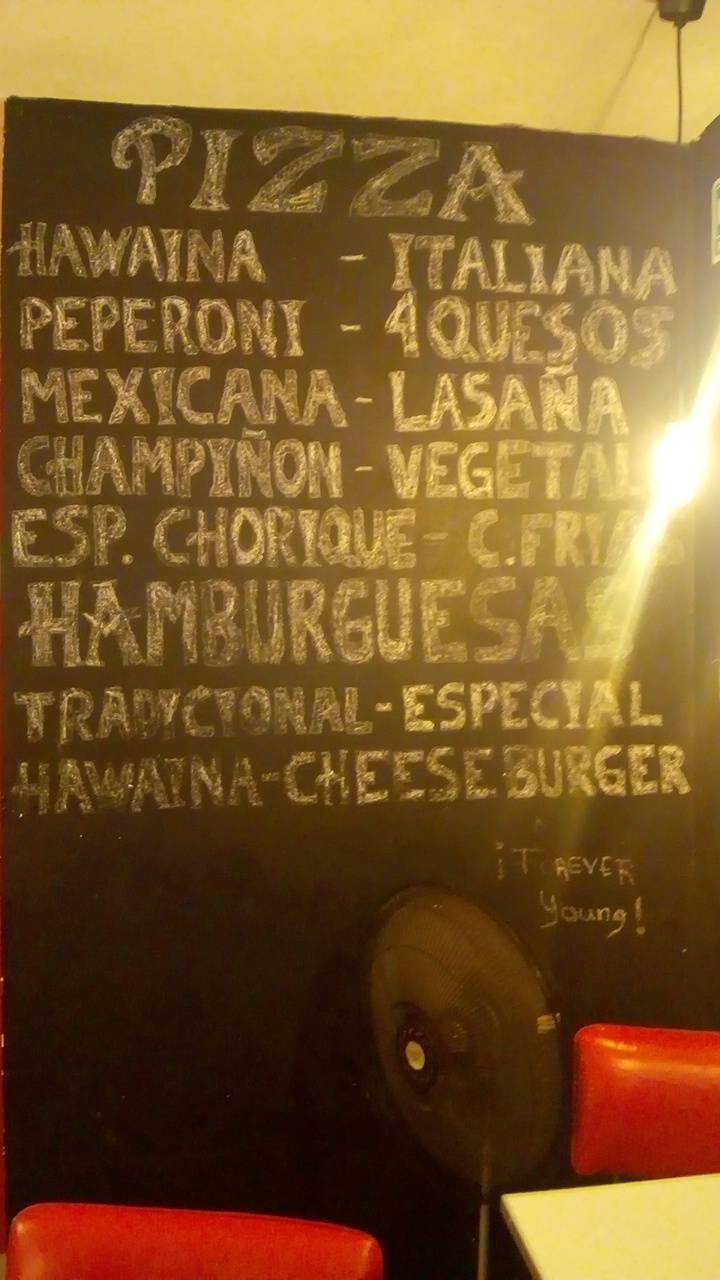 PIZZA
HAWAINA - ITALIANA
PEPERONI - 4 QUESOS
MEXICANA - LASAÑA
CHAMPIÑON - VEGETAL
ESP. CHORIQUE - C. FRIAS
HAMBURGUESAS
TRADICIONAL - ESPECIAL
HAWAINA - CHEESE BURGER
Young!